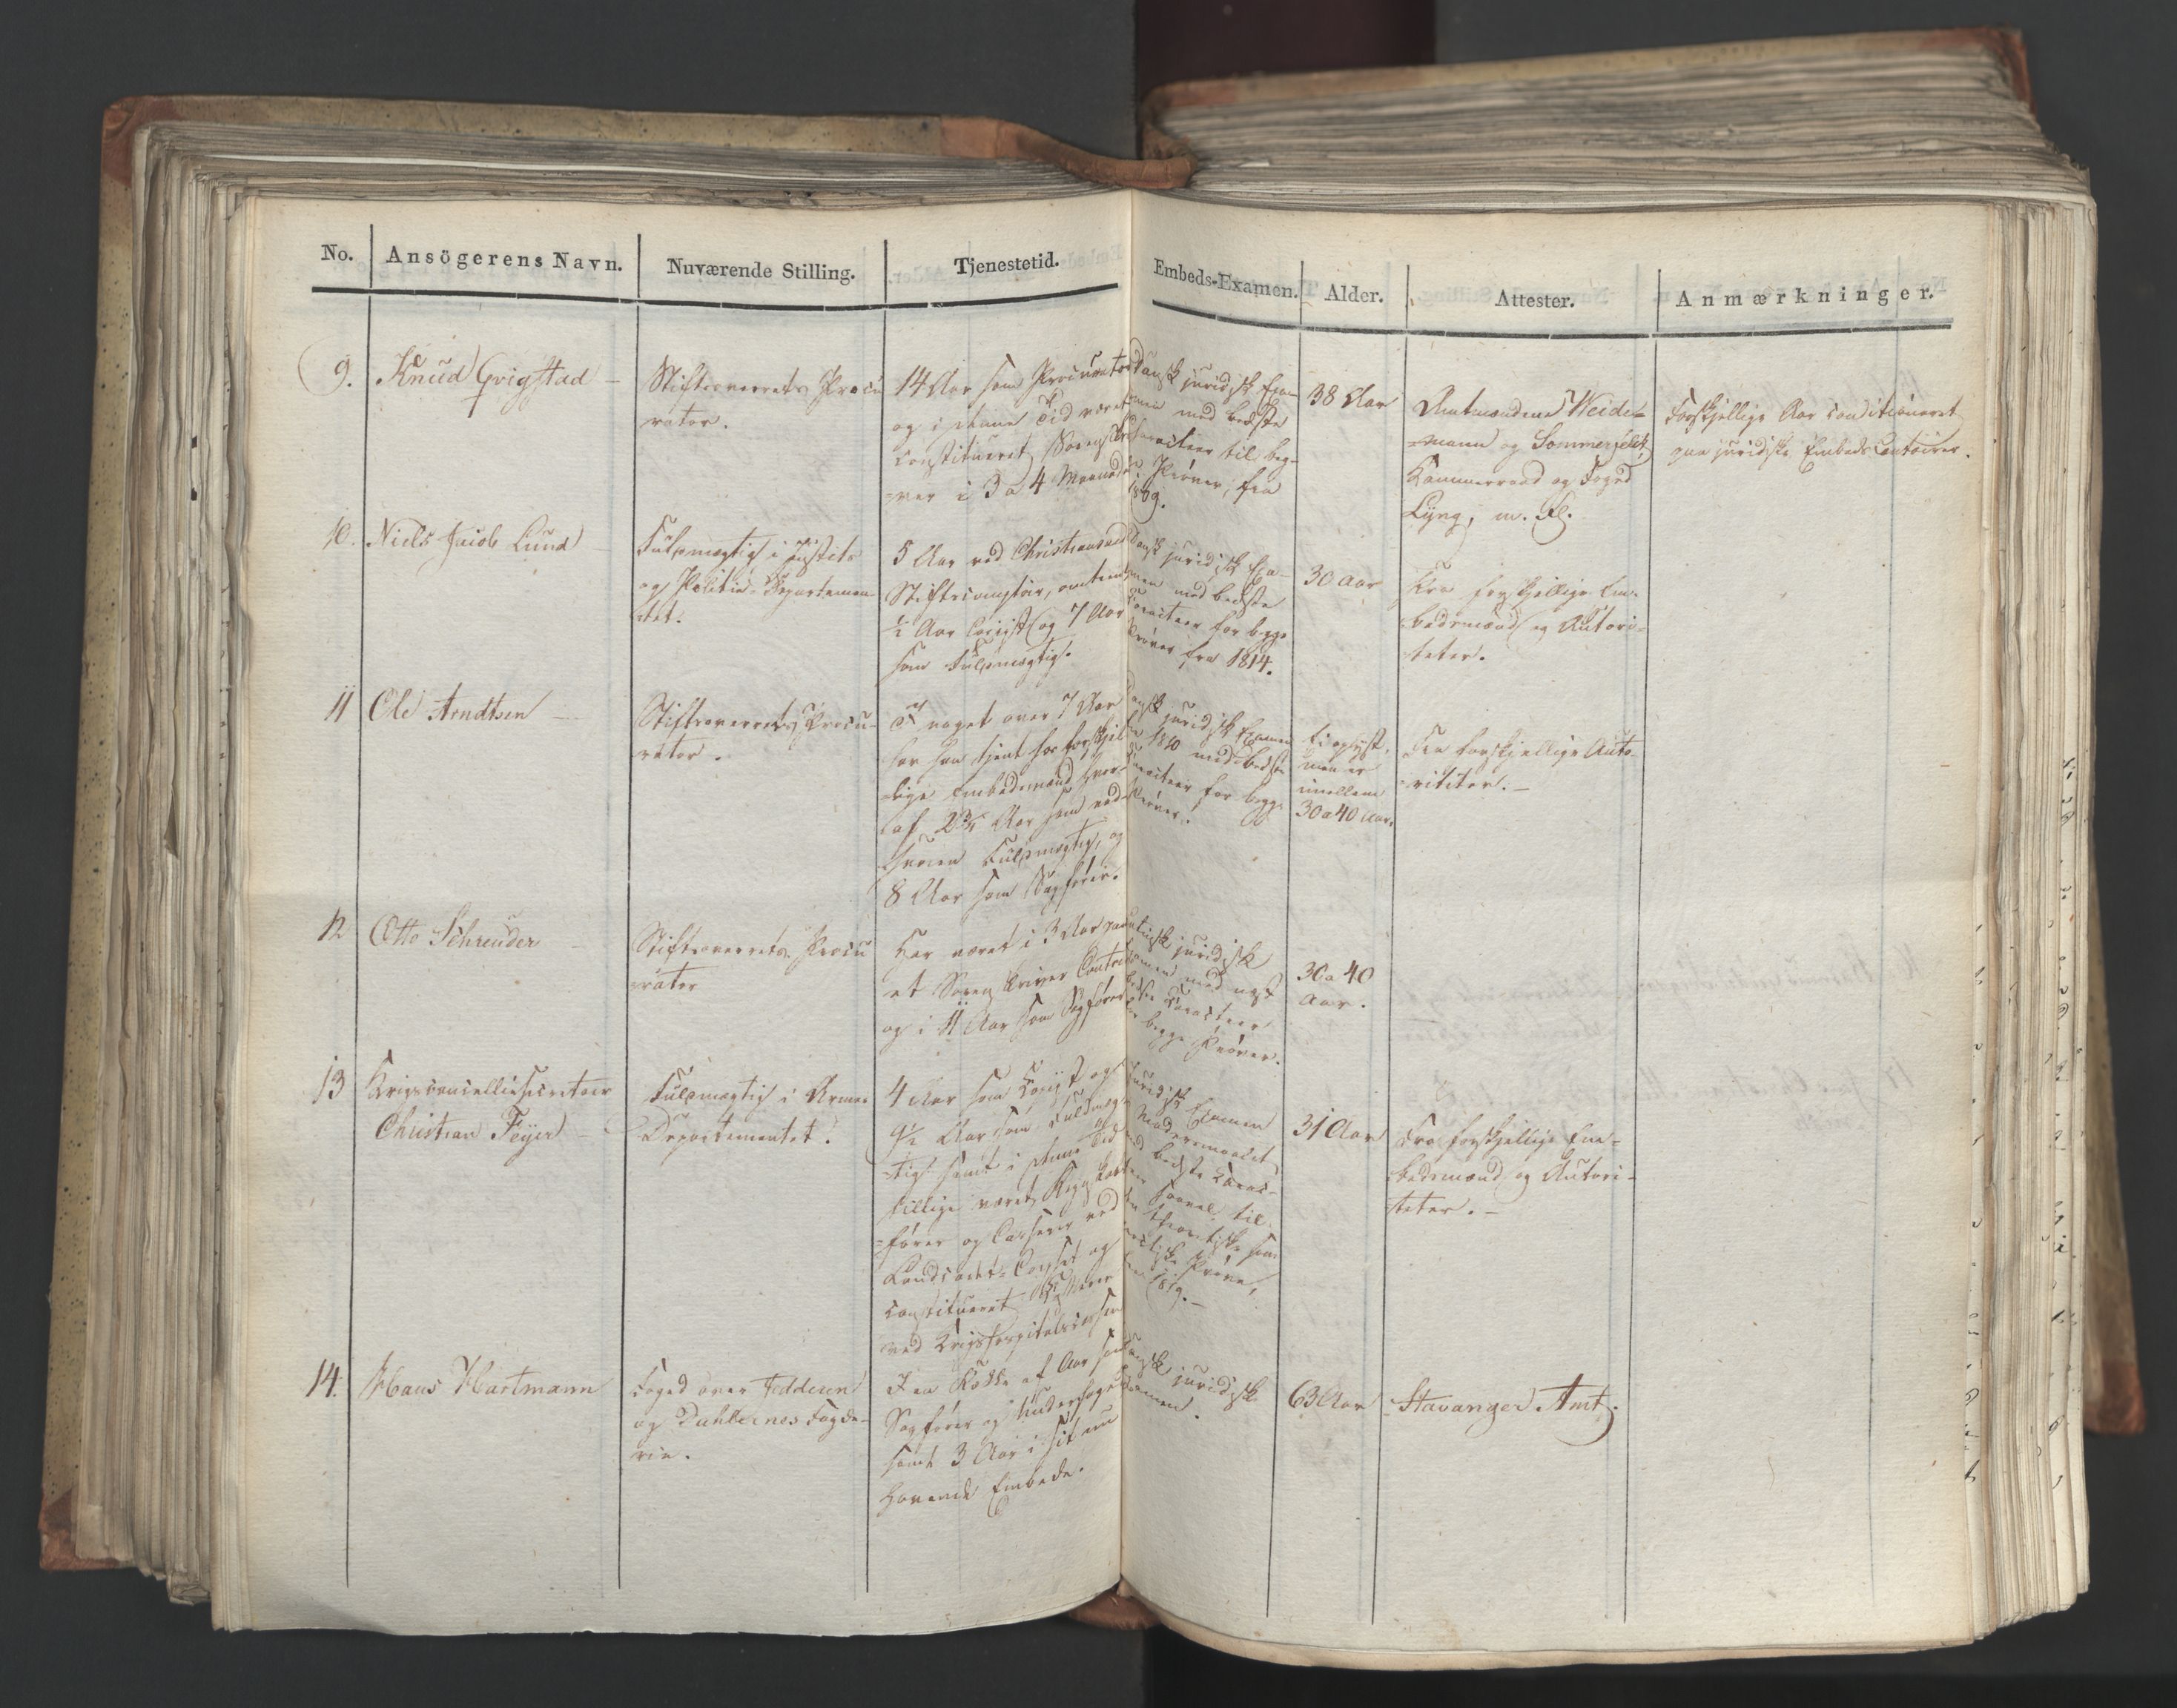 No.
Ansögerens Navn.
Nuværende Stilling.
Tjenestetid.
Embeds-Examen.
Alder.
Attester.
Anmærkninger.
9.
Knud Qvigstad
Stiftsoverrets Procu
rator.
14 Aar som Procurator
og i denne Tid været
constitueret Sorenskri-
ver i 3 a 4 Maaneder
Dansk juridisk Exa-
men med bedste
Character til beg-
ge Prøver, fra
1809.
38 Aar
Amtmændene Weide-
mann og Sommerfeldt,
Kammerraad og Foged
Lyng, m. Fl.
Forskjellige Aar conditioneret
paa juridiske Embeds Contoirer.
10.
Niels Jacob Lund
Fuldmægtig i Justits
og Politie-Departemen-
tet.
5 Aar ved Christiansand
Stiftscontoir, omtrent
½ Aar Copist og 7 Aar
som Fuldmægtig.
Dansk juridisk Exa-
men med bedste
Caracteer for begge
Prøver fra 1814.
30 Aar
Fra forskjellige Em-
bedsmænd og Autori-
teter.
11
Ole Arndtsen
Stiftsoverrets Procu-
rator.
I noget over 7 Aar
har han tjent hos forskjel
lige Embedsmænd hvor-
af 2¾ Aar som ed-
svoren Fuldmægtig, og
8 Aar som Sagfører.
Dansk juridisk Examen
fra 1810 med bedste
Caracteer for begge
Prøver.
Ei oplyst,
men er
imellem
30 a 40 Aar.
Fra forskjellige Auto-
riteter.
12
Otto Schreuder
Stiftsoverrets Procu
rator
Har været i 3 Aar paa
et Sorenskriver Contoir
og i 11 Aar som Sagfører
Latinsk juridisk
Examen med næst
bedste Caracteer
for begge Prøver.
30 a 40
Aar.
13
Krigscancelliesecretair
Christian Feyer
Fuldmægtig i Armee
Departementet.
4 Aar som Copist og
9½ Aar som Fuldmæg-
tig samt i denne Tid
tillige været Regnskabs
fører og Casserer ved
Landcadet-Corpset og
constitueret Casserer
ved Krigshospitalscassen
Juridisk Examen
i Modersmaalet
med bedste Carac-
teer saavel til
den theoretiske som
practiske Prøve,
fra 1819.
31 Aar
Fra forskjellige Em-
bedsmænd og Autori-
teter.
14.
Hans Hartmann
Foged over Jedderen
og Dahlernes Fogde-
rie.
I en Række af Aar som
Sagfører og Underfoged
samt 3 Aar i sit nu
havende Embede.
Dansk juridisk
Examen.
63 Aar
Stavanger Amt.